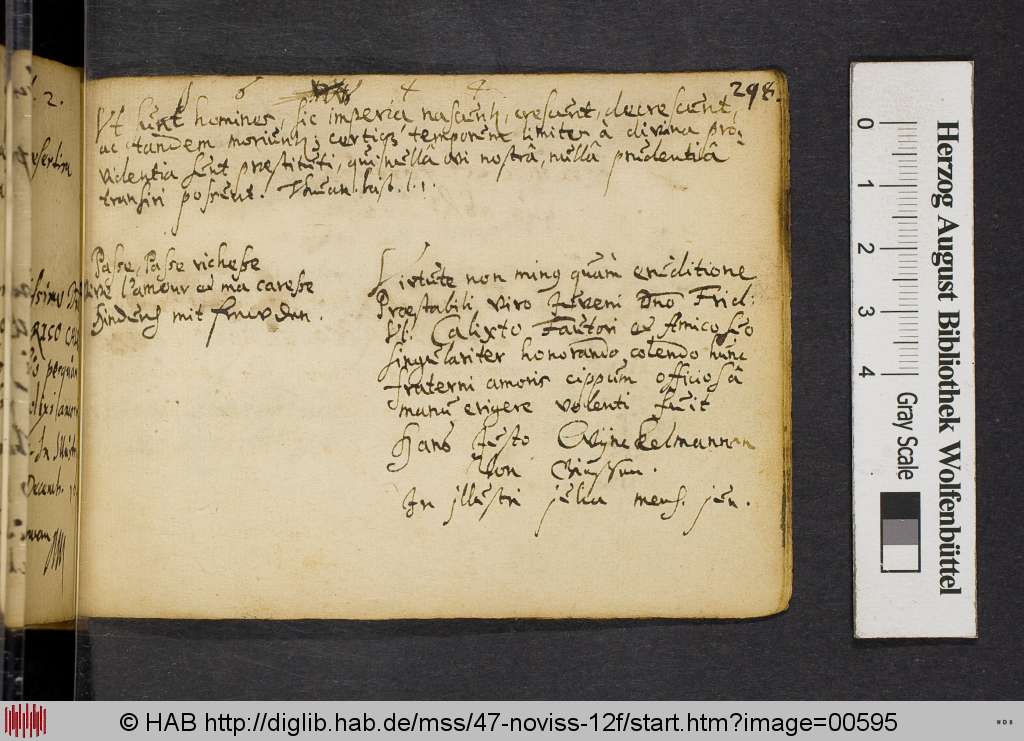 1 6 4 4
298.
Ut sunt homines, sic imperia nascunt, crescunt, decrescunt,
ac tandem moriunt; certiq temporum limites â divina pro-
videntia sunt præstituti, qui nullâ vi nostrâ, nullâ prudentiâ
transiri possent. Thuan. hist. l. 1.
Passe, Passe richesse
Vive l'amour et ma caresse
hinden mit
Virtute non minq quàm eruditione
Præstabili viro Juveni Dno Frid:
Ul. Calixto Fautori et Amico suo
singulariter honorando, colendo hunc
fraterni amoris cippum officiosâ
manu erigere volenti fuit
Hans Justo Wÿnckelmannen
von
In illustri Julia mens. jun.
2.
RICO
In
Decemb.
Herzog August Bibliothek Wolfenbüttel
0 1 2 3 4
Gray Scale
© HAB http://diglib.hab.de/mss/47-noviss-12f/start.htm?image=00595